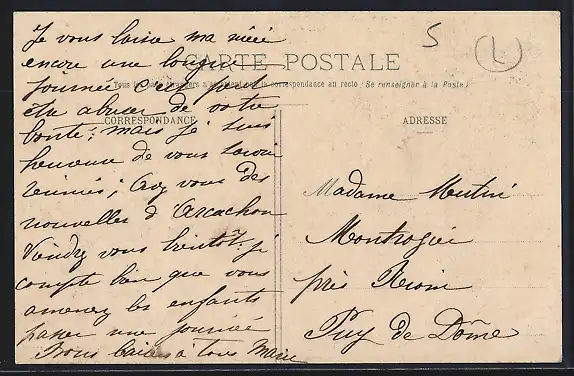 Je vous laisse ma nièce
encore une longue
journée c'est peut
être abuser de votre
bonté; mais je suis
heureuse de vous savoir
réunies; Avez vous des
nouvelles d'Arcachon
Viendrez vous bientôt: je
compte bien que vous
amenerez les enfants
passer une journée
Bons baisers à tous Marie
5
L
CARTE POSTALE
Tous les pays étrangers n'acceptent pas la correspondance au recto (Se renseigner à la Poste)
CORRESPONDANCE
ADRESSE
Madame
près Riom
Puy de Dôme